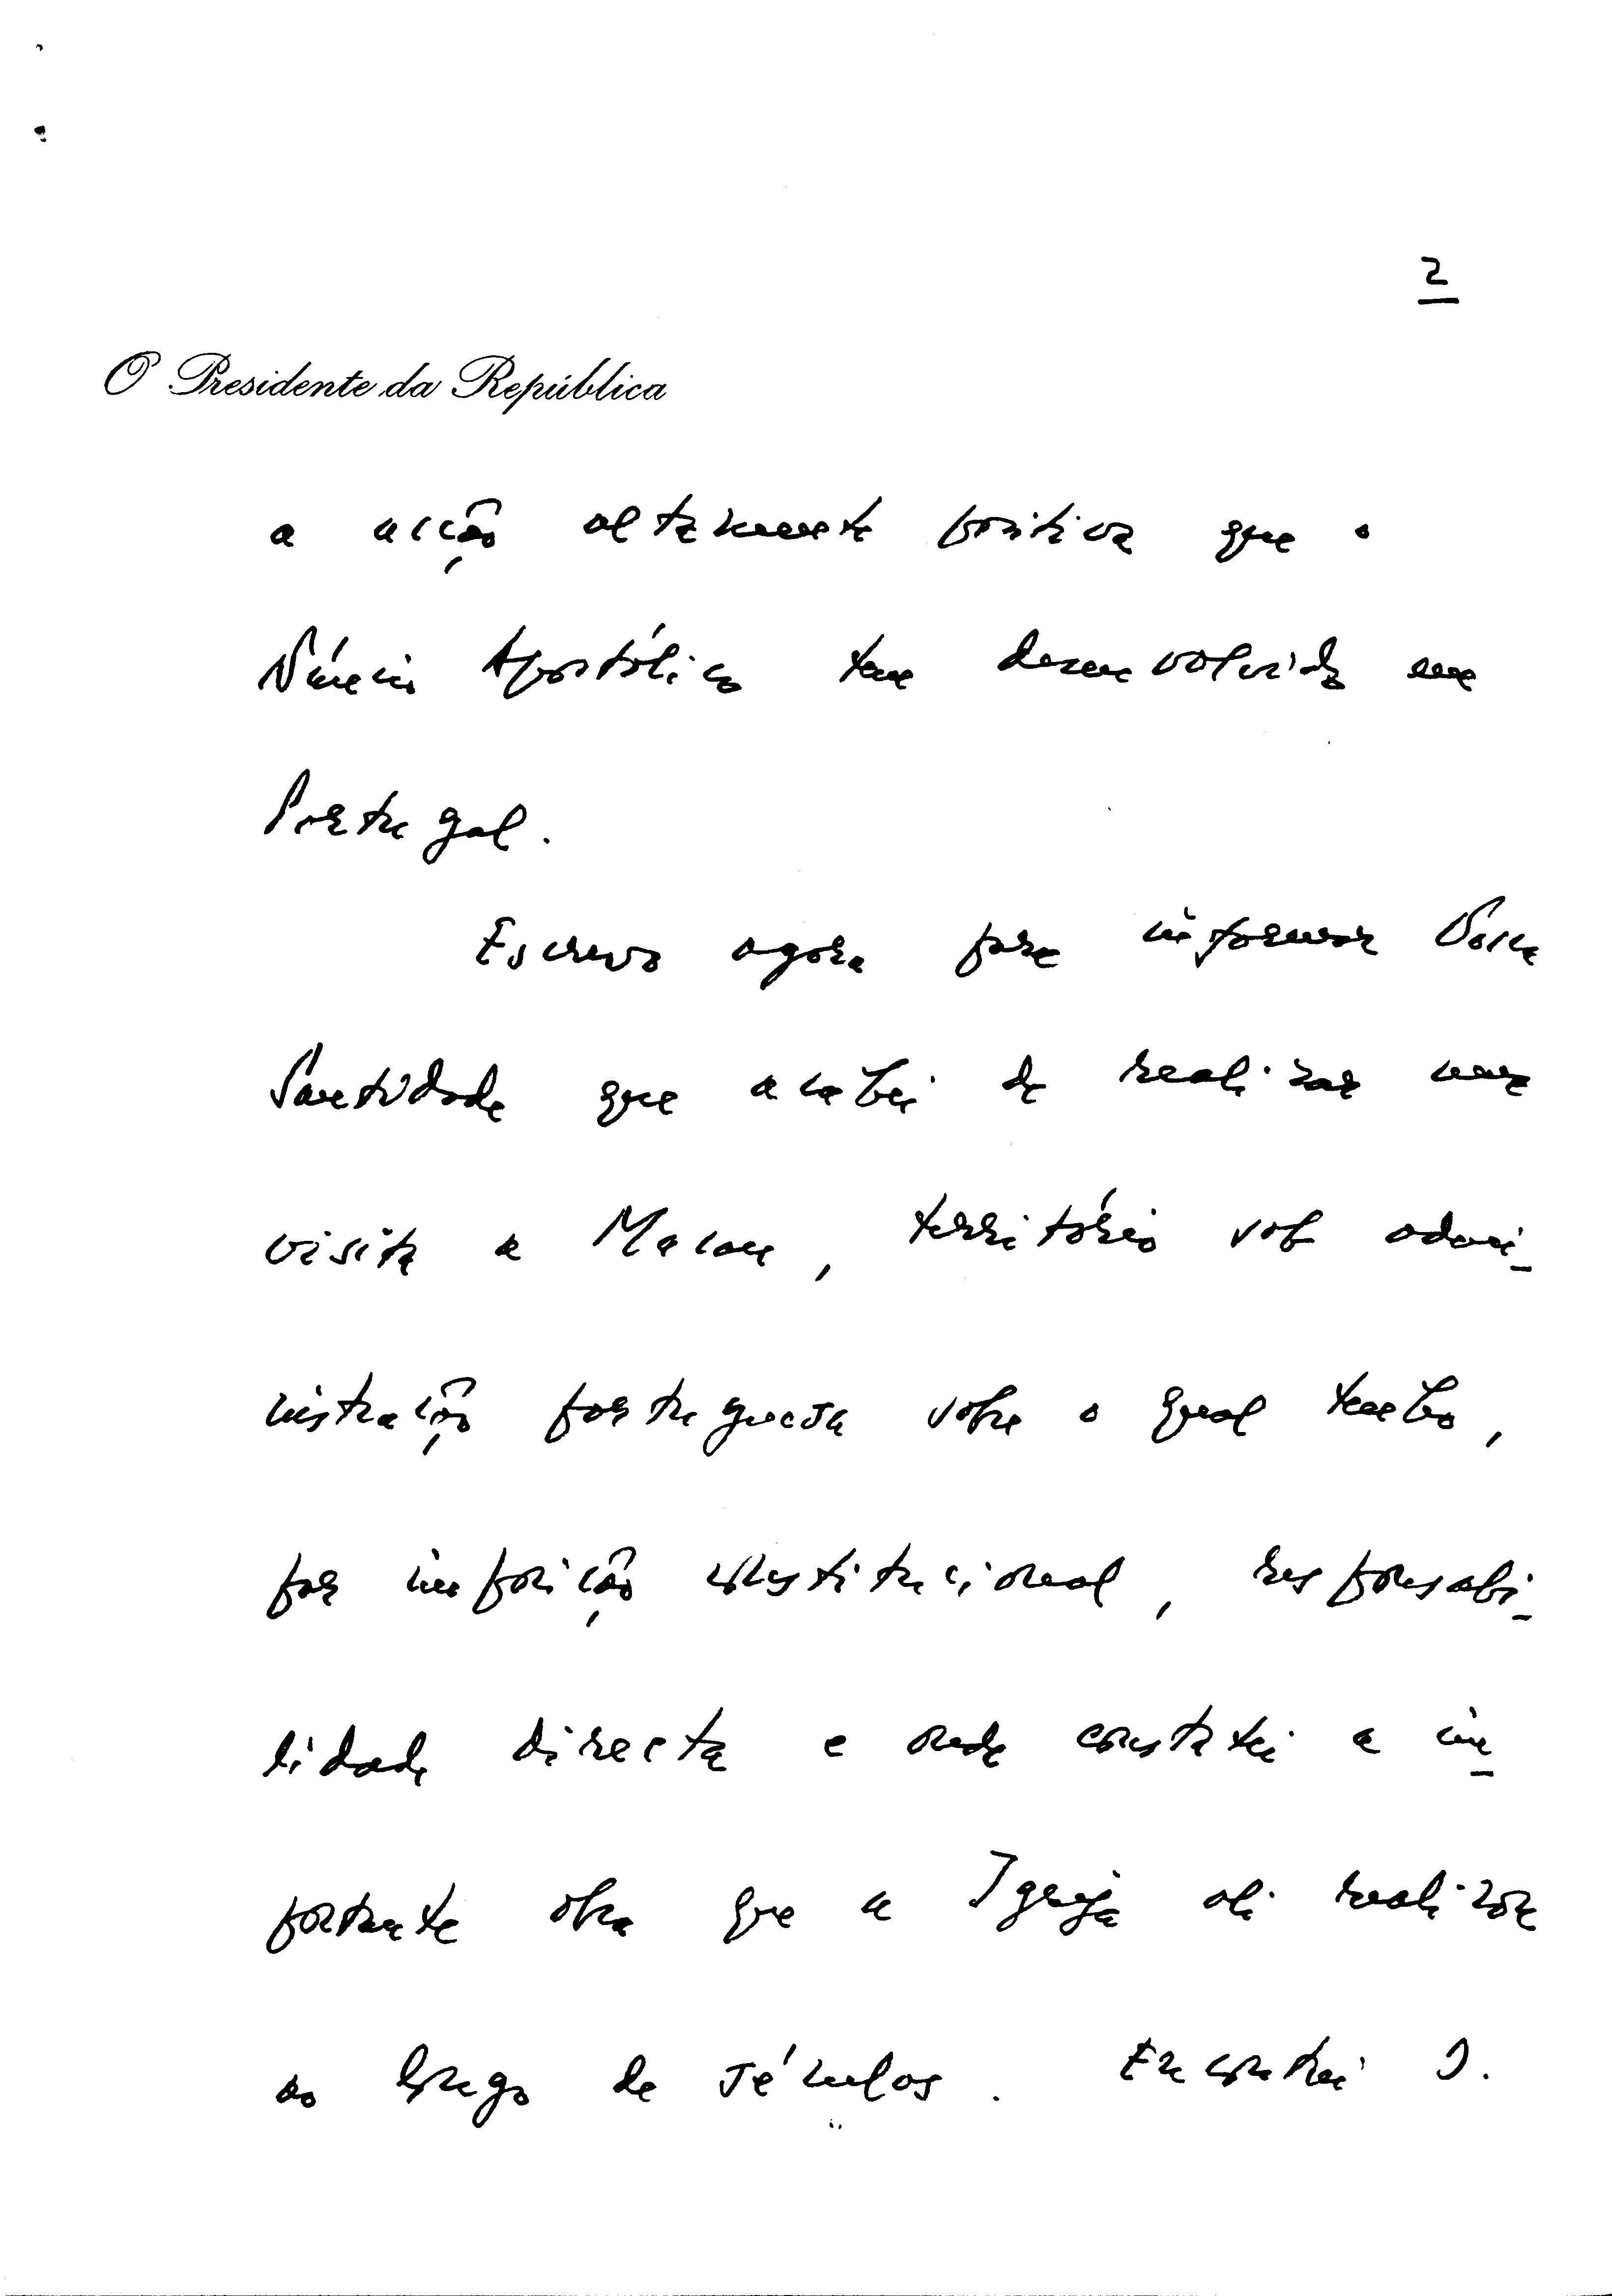 2
O Presidente da República
a acção altamente positiva que o
Núncio Apostólico tem desenvolvido em
Portugal.
Escrevo agora para informar Vossa
Santidade que acabei de realizar uma
visita a Macau, território sob admi-
nistração portuguesa sobre o qual tenho,
por imposição constitucional, responsabi-
lidade directa e onde constatei a im-
portante obra que a Igreja ali realizou
ao longo de séculos. Encontrei D.